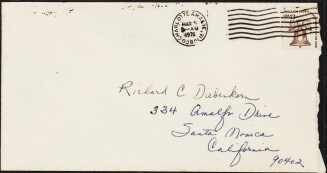 CHARLOTTE AMALIE, VI
MAR
AM
1976
Richard C Diebenkorn
334 Amalfi Drive
Santa Monica
California
90402